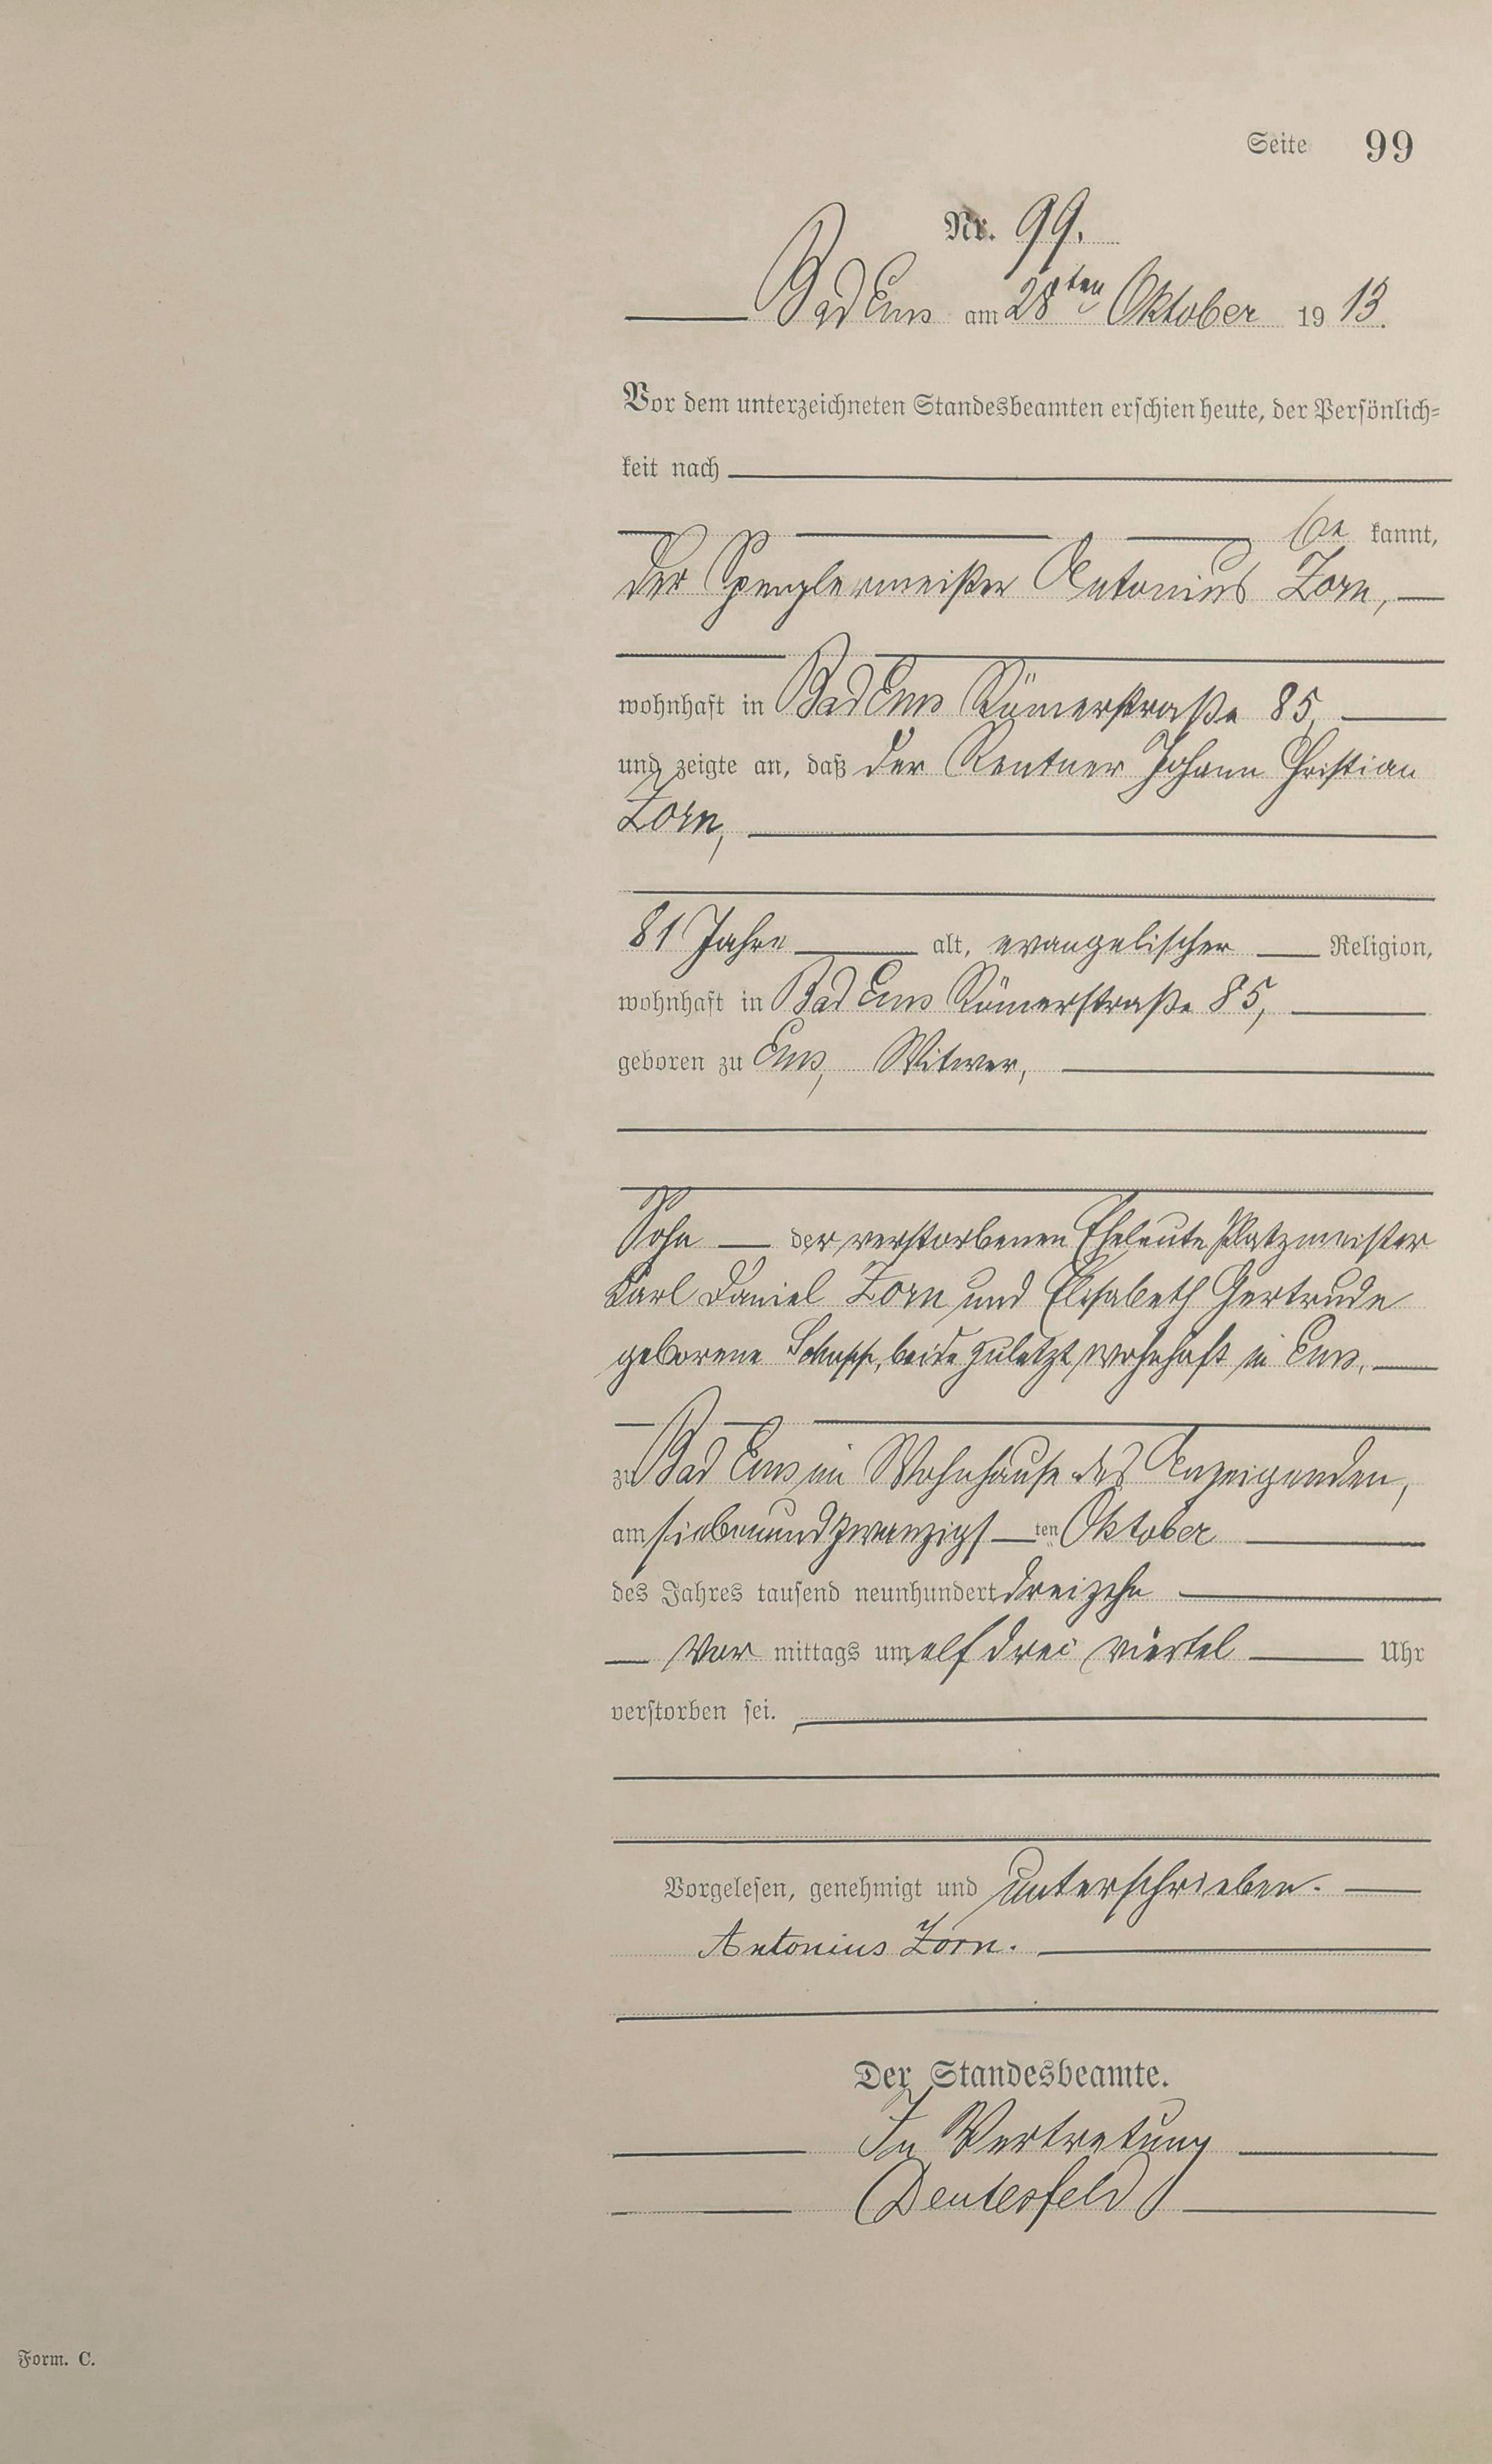 Seite 99
Nr. 99.
Bad Ems am 28ten Oktober 1913.
Vor dem unterzeichneten Standesbeamten erschien heute, der Persönlich=
keit nach
be kannt,
der Spenglermeister Antonius Zorn,
wohnhaft in Bad Ems Römerstraße 85,
und zeigte an, daß der Rentner Johann Christian
Zorn,
81 Jahre alt, evangelischer Religion,
wohnhaft in Bad Ems Römerstraße 85,
geboren zu Ems, Witwer,
Sohn der verstorbenen Eheleute Platzmeister
Karl Daniel Zorn und Elisabeth Gertrude
geborene beide zuletzt wohnhaft in Ems,
zu Bad Ems im Wohnhause des Anzeigenden,
am siebenundzwanzigsten Oktober
des Jahres tausend neunhundert dreizehn
Vor mittags um elf drei viertel Uhr
verstorben sei.
Vorgelesen, genehmigt und unterschrieben.
Antonius Zorn.
Der Standesbeamte.
In Vertretung
Deutesfeld
Form. C.